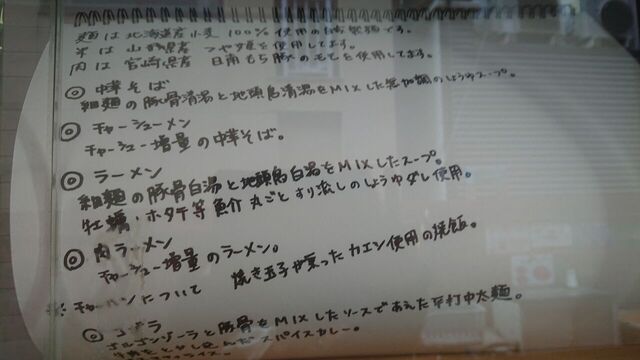 麺は北海道産小麦100%使用の自家製麺です。
米は山形県産 つや姫を使用してます。
肉は宮崎県産 日南もち豚のモモを使用してます。
◎ 中華そば
細麺の豚骨清湯と地頭鳥清湯をMIXした無加調のしょうゆスープ。
◎ チャーシューメン
チャーシュー増量の中華そば。
◎ ラーメン
細麺の豚骨白湯と地頭鳥白湯をMIXしたスープ。
牡蠣・ホタテ等魚介丸ごとすり流しのしょうゆダレ使用。
◎ 肉ラーメン
チャーシュー増量のラーメン。
※ チャーハンについて 焼き玉子が乗ったカエシ使用の焼飯。
◎
ゴルゴンゾーラと豚骨をMIXしたソースであえた平打中太麺。
スパイスカレー。